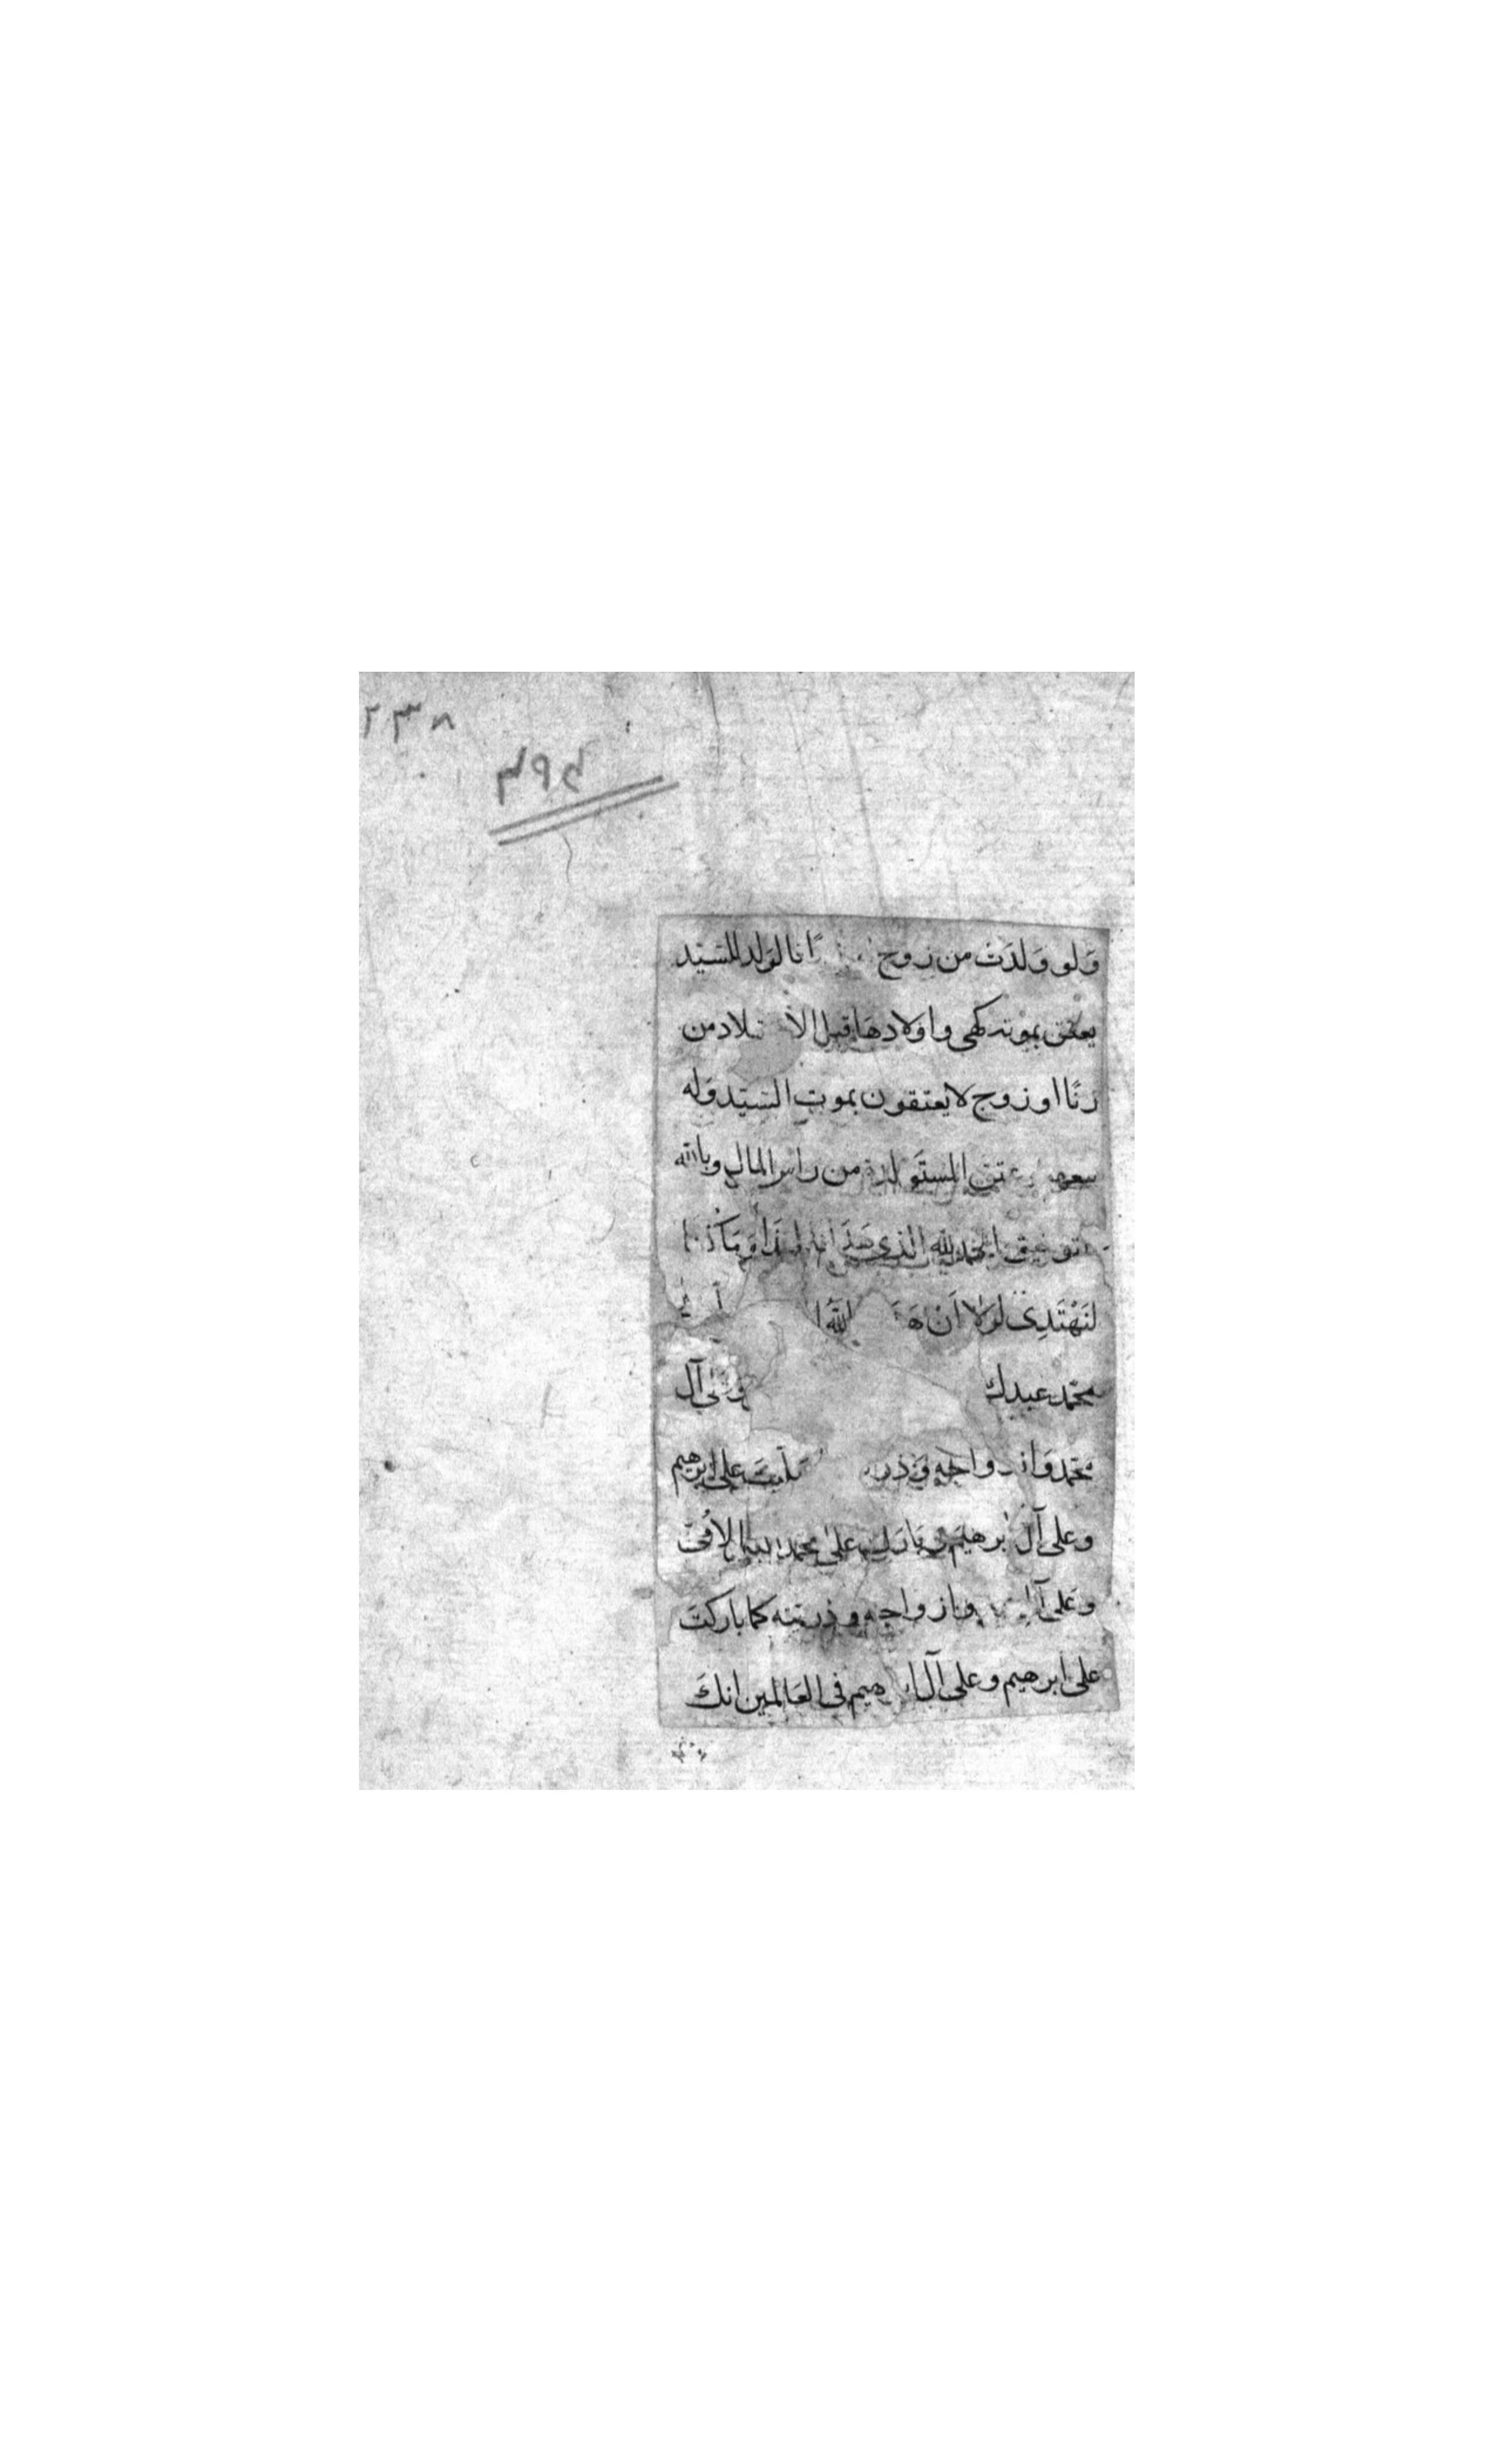 ٢٣٨
٤٩٤
وَلو وَلدَت من زوج انا لوَلد للسَيّد
يعتق بموته كهى واوَلادهَا قبل من
زنًا او زوج لا يعتقون بموت السَيّد وَله
عتق المستَولدة من راس المال وبالله
التوفيق الحمد لله الذي هَدَانا لهذَا وَمَا كُنّا
لنَهْتَدِىَ لوَلا اَن الله
محمّد عبدك وعلى آل
محمّد وَازواجه وَ على ابرهيم
وعلى آل ابرهيم وَبارك على محمد النبى الاُمّىّ
وعَلى وازواجه وذريته كما باركتَ
على ابرهيم وعلى آل فى العَالمين انكَ